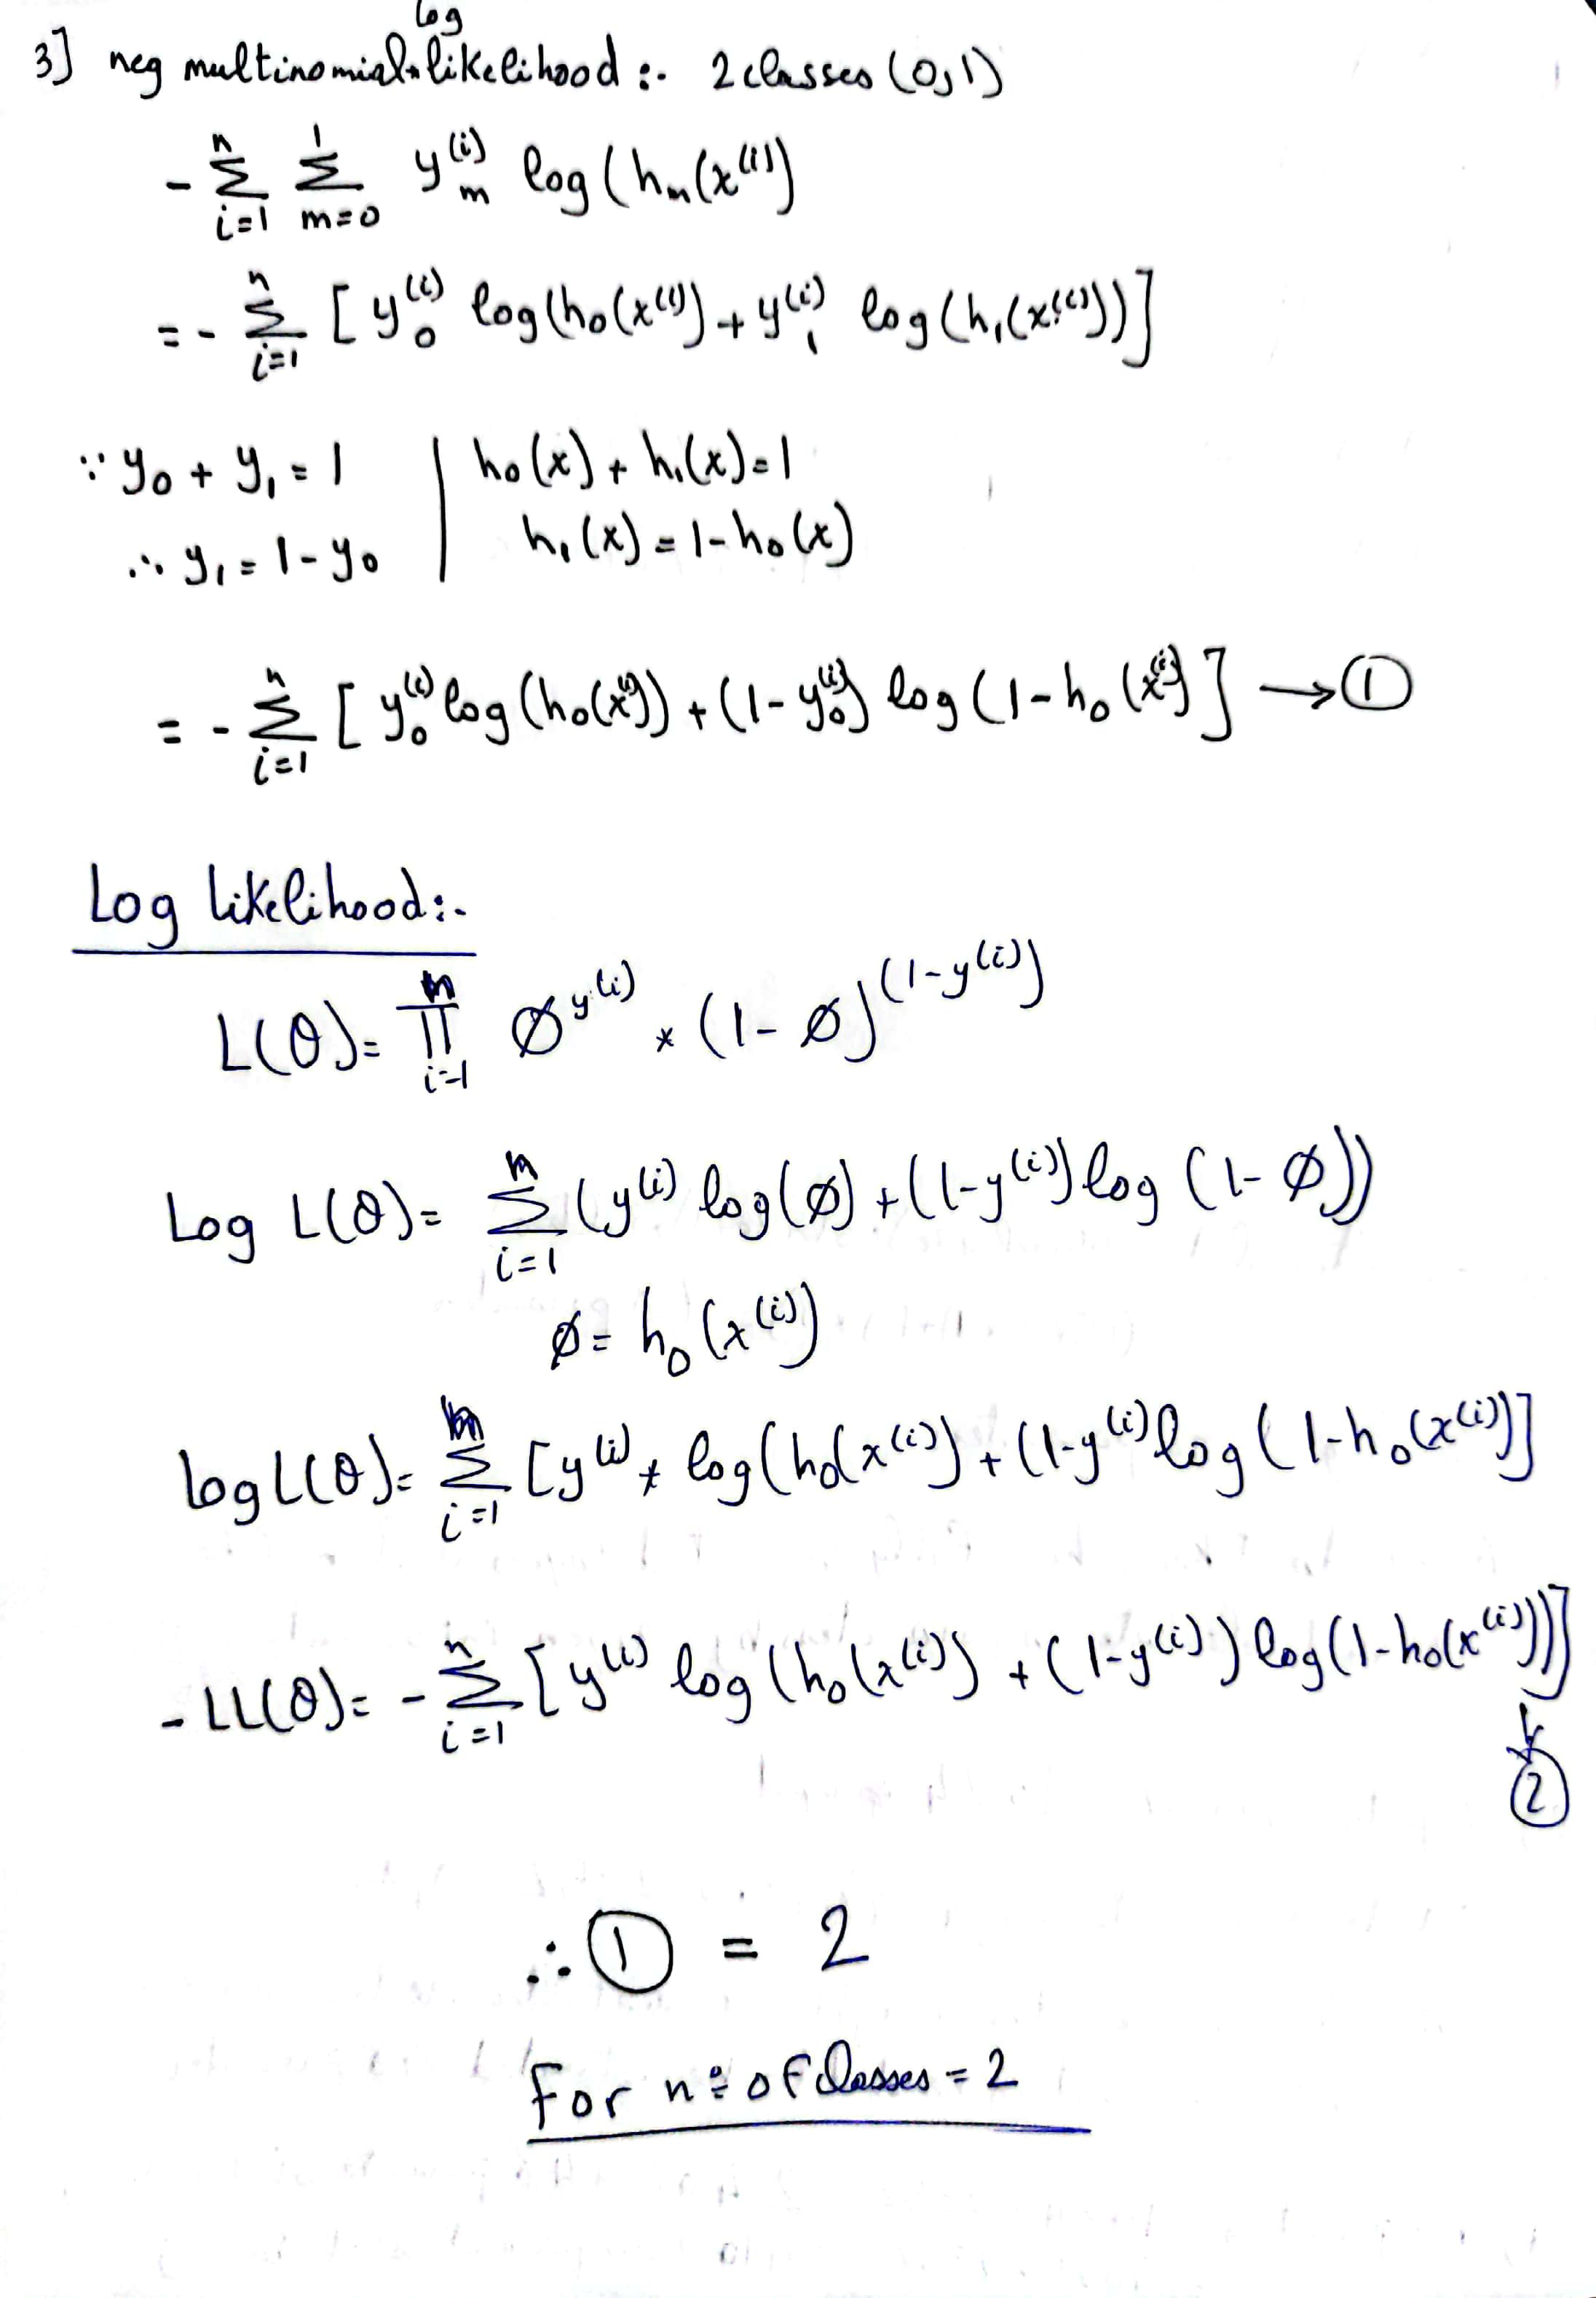 3] neg multinomial log likelihood :- 2 classes (0,1)
- n∑i=1 1∑m=0 y_m^(i) log(h_m(x^(i))
= - n∑i=1 [ y_0^(i) log(h_0(x^(i)) + y_1^(i) log(h_1(x^(i)))]
∵ y_0 + y_1 = 1 | h_0(x) + h_1(x) = 1
∴ y_1 = 1 - y_0 | h_1(x) = 1 - h_0(x)
= - n∑i=1 [ y_0^(i) log(h_0(x^(i))) + (1 - y_0^(i)) log(1 - h_0(x^(i)) ] → ①
Log likelihood :-
L(θ) = n∏i=1 ø^y^(i) * (1 - ø)^(1-y^(i))
Log L(θ) = n∑i=1 (y^(i) log(ø) + (1-y^(i)) log (1- ø))
ø = h_0(x^(i))
log L(θ) = n∑i=1 [y^(i) * log(h_0(x^(i)) + (1-y^(i) log(1-h_0(x^(i))]
- LL(θ) = - n∑i=1 [y^(i) log(h_0(x^(i)) + (1-y^(i)) log(1-h_0(x^(i)))]
②
∴ ① = 2
For nº of classes = 2